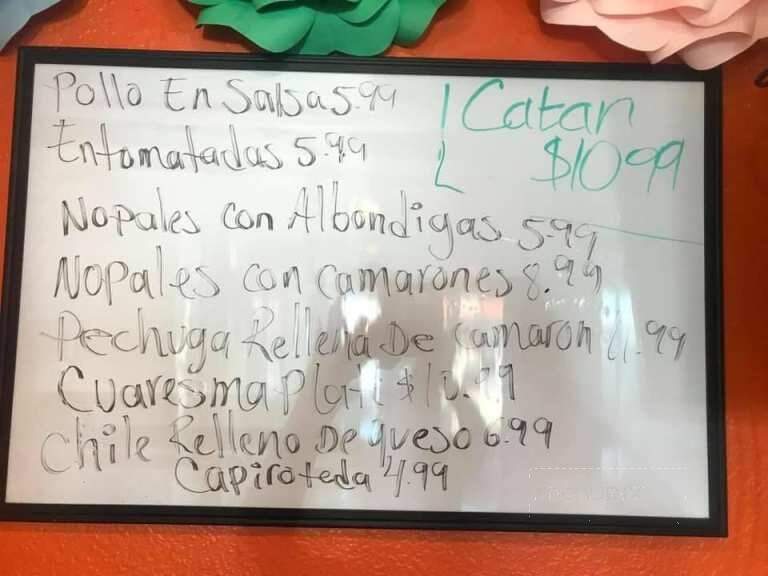 Pollo En Salsa 5.99
Entomatadas 5.99
Nopales con Albondigas 5.99
Nopales con camarones 8.99
Pechuga Rellena De camaron 11.99
Cuaresma Plati $10.99
Chile Relleno De queso 6.99
Capiroteda 4.99
Catan
$10.99